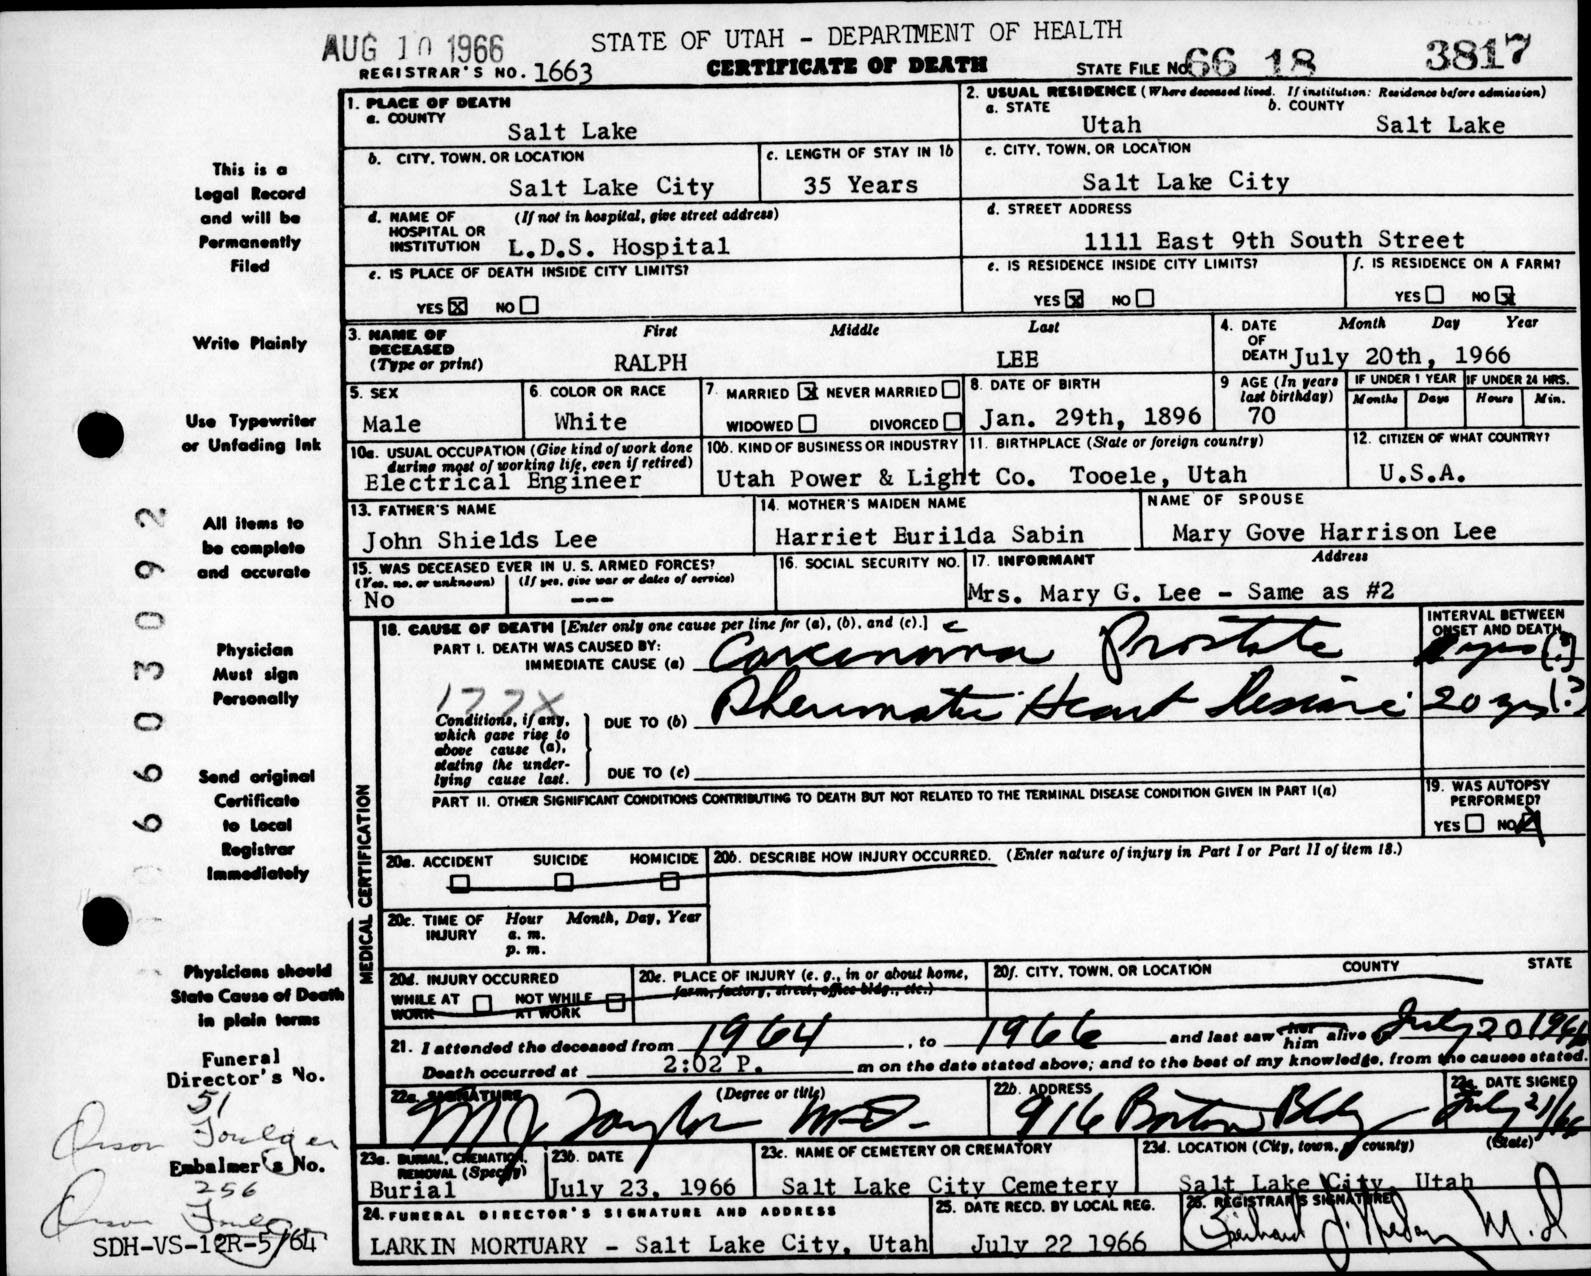 AUG 10 1966
STATE OF UTAH - DEPARTMENT OF HEALTH
REGISTRAR'S NO. 1663
CERTIFICATE OF DEATH
STATE FILE No. 66 18 3817
1. PLACE OF DEATH
a. COUNTY
Salt Lake
2. USUAL RESIDENCE (Where deceased lived. If institution: Residence before admission)
a. STATE
Utah
b. COUNTY
Salt Lake
b. CITY, TOWN, OR LOCATION
Salt Lake City
c. LENGTH OF STAY IN 1b
35 Years
c. CITY, TOWN, OR LOCATION
Salt Lake City
d. NAME OF HOSPITAL OR INSTITUTION
(If not in hospital, give street address)
L.D.S. Hospital
d. STREET ADDRESS
1111 East 9th South Street
e. IS PLACE OF DEATH INSIDE CITY LIMITS?
YES X NO
e. IS RESIDENCE INSIDE CITY LIMITS?
YES X NO
f. IS RESIDENCE ON A FARM?
YES NO X
3. NAME OF DECEASED
(Type or print)
First Middle Last
RALPH LEE
4. DATE OF DEATH
Month Day Year
July 20th, 1966
5. SEX
Male
6. COLOR OR RACE
White
7. MARRIED X NEVER MARRIED
WIDOWED DIVORCED
8. DATE OF BIRTH
Jan. 29th, 1896
9 AGE (In years last birthday)
70
IF UNDER 1 YEAR
Months Days
IF UNDER 24 HRS.
Hours Min.
10a. USUAL OCCUPATION (Give kind of work done during most of working life, even if retired)
Electrical Engineer
10b. KIND OF BUSINESS OR INDUSTRY
Utah Power & Light Co.
11. BIRTHPLACE (State or foreign country)
Tooele, Utah
12. CITIZEN OF WHAT COUNTRY?
U.S.A.
13. FATHER'S NAME
John Shields Lee
14. MOTHER'S MAIDEN NAME
Harriet Eurilda Sabin
NAME OF SPOUSE
Mary Gove Harrison Lee
15. WAS DECEASED EVER IN U. S. ARMED FORCES?
(Yes, no, or unknown) (If yes, give war or dates of service)
No ---
16. SOCIAL SECURITY NO.
17. INFORMANT Address
Mrs. Mary G. Lee - Same as #2
MEDICAL CERTIFICATION
18. CAUSE OF DEATH [Enter only one cause per line for (a), (b), and (c).]
PART I. DEATH WAS CAUSED BY:
IMMEDIATE CAUSE (a) Carcinoma Prostate
INTERVAL BETWEEN ONSET AND DEATH
yrs (?)
177X
Conditions, if any, which gave rise to above cause (a), stating the underlying cause last.
DUE TO (b) Rheumatic Heart Disease 20 yrs (?)
DUE TO (c)
PART II. OTHER SIGNIFICANT CONDITIONS CONTRIBUTING TO DEATH BUT NOT RELATED TO THE TERMINAL DISEASE CONDITION GIVEN IN PART I(a)
19. WAS AUTOPSY PERFORMED?
YES NO
20a. ACCIDENT SUICIDE HOMICIDE
20b. DESCRIBE HOW INJURY OCCURRED. (Enter nature of injury in Part I or Part II of item 18.)
20c. TIME OF INJURY
Hour Month, Day, Year
a. m.
p. m.
20d. INJURY OCCURRED
WHILE AT WORK NOT WHILE AT WORK
20e. PLACE OF INJURY (e. g., in or about home, farm, factory, street, office bldg., etc.)
20f. CITY, TOWN, OR LOCATION COUNTY STATE
21. I attended the deceased from 1964, to 1966 and last saw her him alive July 20 1966
Death occurred at 2:02 P. m on the date stated above; and to the best of my knowledge, from the causes stated.
22a. SIGNATURE (Degree or title)
M J Taylor M.D.
22b. ADDRESS
916 Boston Bldg
22c. DATE SIGNED
July 21/66
23a. BURIAL, CREMATION, REMOVAL (Specify)
Burial
23b. DATE
July 23, 1966
23c. NAME OF CEMETERY OR CREMATORY
Salt Lake City Cemetery
23d. LOCATION (City, town, or county) (State)
Salt Lake City, Utah
24. FUNERAL DIRECTOR'S SIGNATURE AND ADDRESS
LARKIN MORTUARY - Salt Lake City, Utah
25. DATE RECD. BY LOCAL REG.
July 22 1966
26. REGISTRAR'S SIGNATURE
M. D
This is a
Legal Record
and will be
Permanently
Filed
Write Plainly
Use Typewriter
or Unfading Ink
All items to
be complete
and accurate
Physician
Must sign
Personally
Send original
Certificate
to Local
Registrar
Immediately
Physicians should
State Cause of Death
in plain terms
Funeral
Director's No.
51
Orson Foulger
Embalmer's No.
256
Orson Foulger
SDH-VS-12R-5/64
06603092